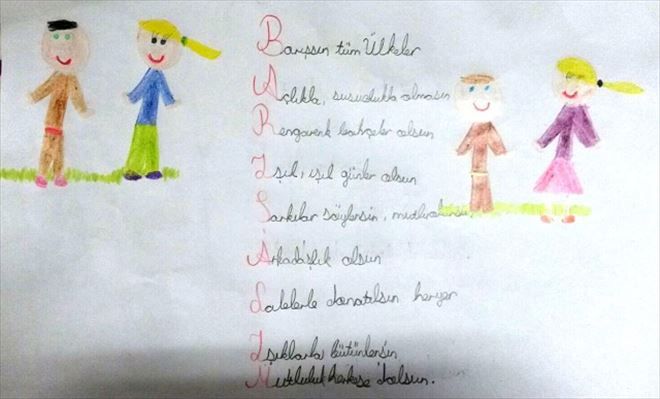 Barışsın tüm Ülkeler
Açlıkla, susuzlukla olmasın
Rengarenk bahçeler olsun
Işıl, ışıl günler olsun
Şarkılar söylensin, mutlu olunsun,
Arkadaşlık olsun
Lalelerle donatılsın heryer
Işıklarla bütünlensin
Mutluluk herkese dolsun.